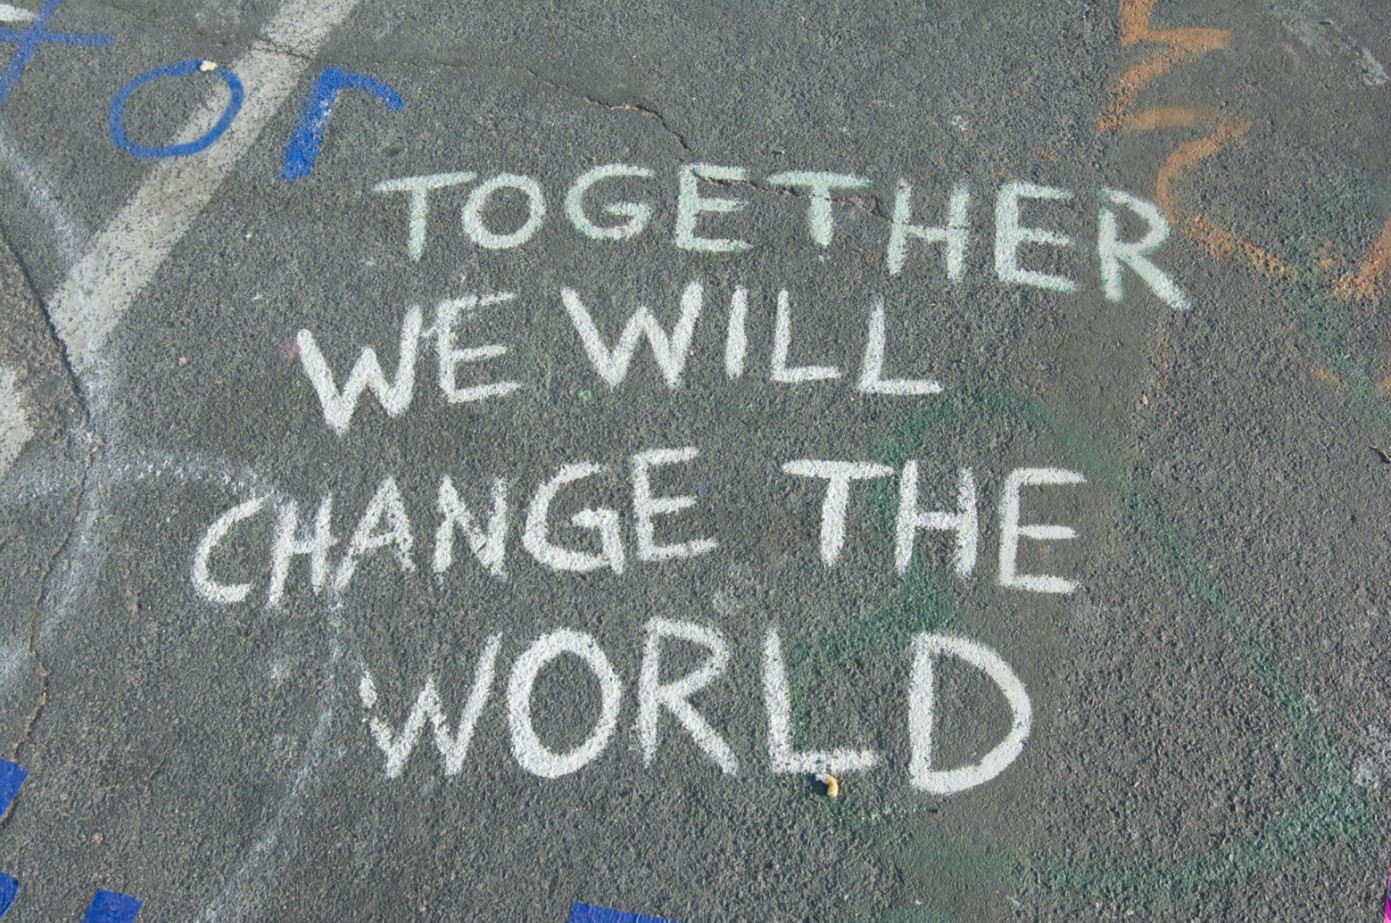 for
TOGETHER
WE WILL
CHANGE THE
WORLD